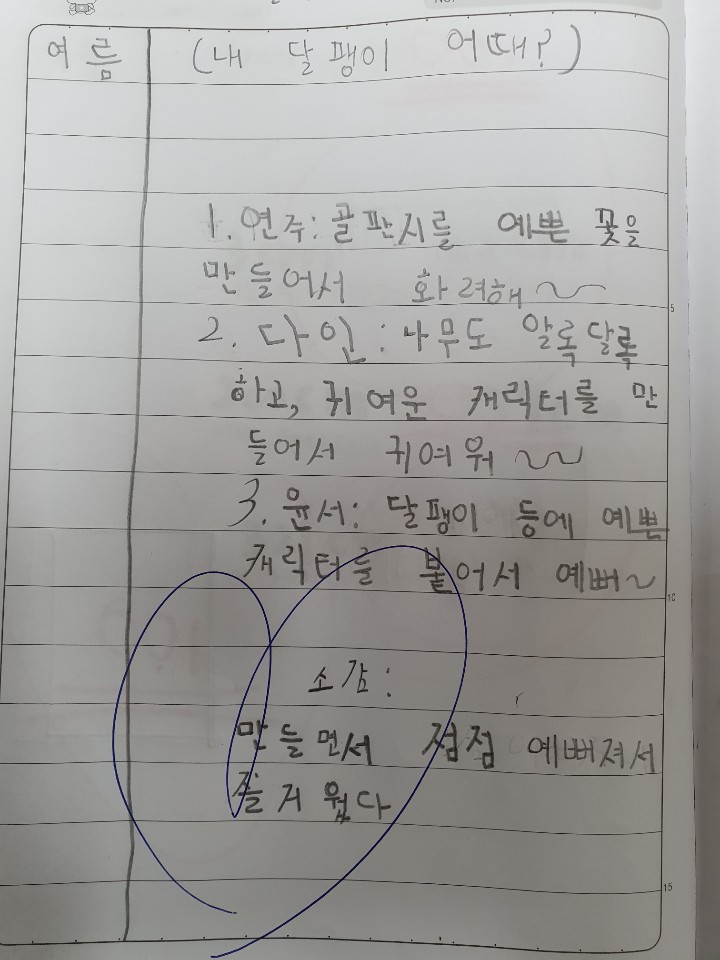 여름 (내 달팽이 어때?)
1. 연주: 골판지를 예쁜 꽃을
만들어서 화려해~
2. 다인: 나무도 알록달록
하고, 귀여운 캐릭터를 만
들어서 귀여워~
3. 윤서: 달팽이 등에 예쁜
캐릭터를 붙어서 예뻐~
소감:
만들면서 점점 예뻐져서
즐거웠다
5
10
15